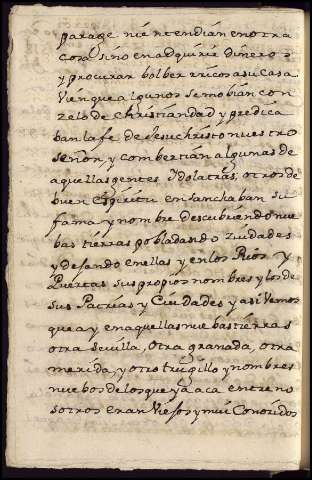 parage nie ntendian en otra
cosa sino en adquirir dineros
y procurar bolber rricos a su Casa
vien que algunos se mobian con
zelo de Christiandad y predica
ban la fe de Jesuchristo nuestro
Señor, y combertian algunas de
aquellas gentes Idolatras, otros de
buen Espiritu ensanchaban su
fama y nombre descubriendo nue
bas tierras pobladando ziudades
y dejando en ellas y en los Rios y
Puertos sus propios nombres y los de
sus Patrias y Ciudades y asi vemos
que ay en aquellas nuebas tierras
otra sevilla, otra granada, otra
merida, y otro truxillo y nombres
nuebos de los que ya aca entre no
sotros eran viejos y mui Conozidos